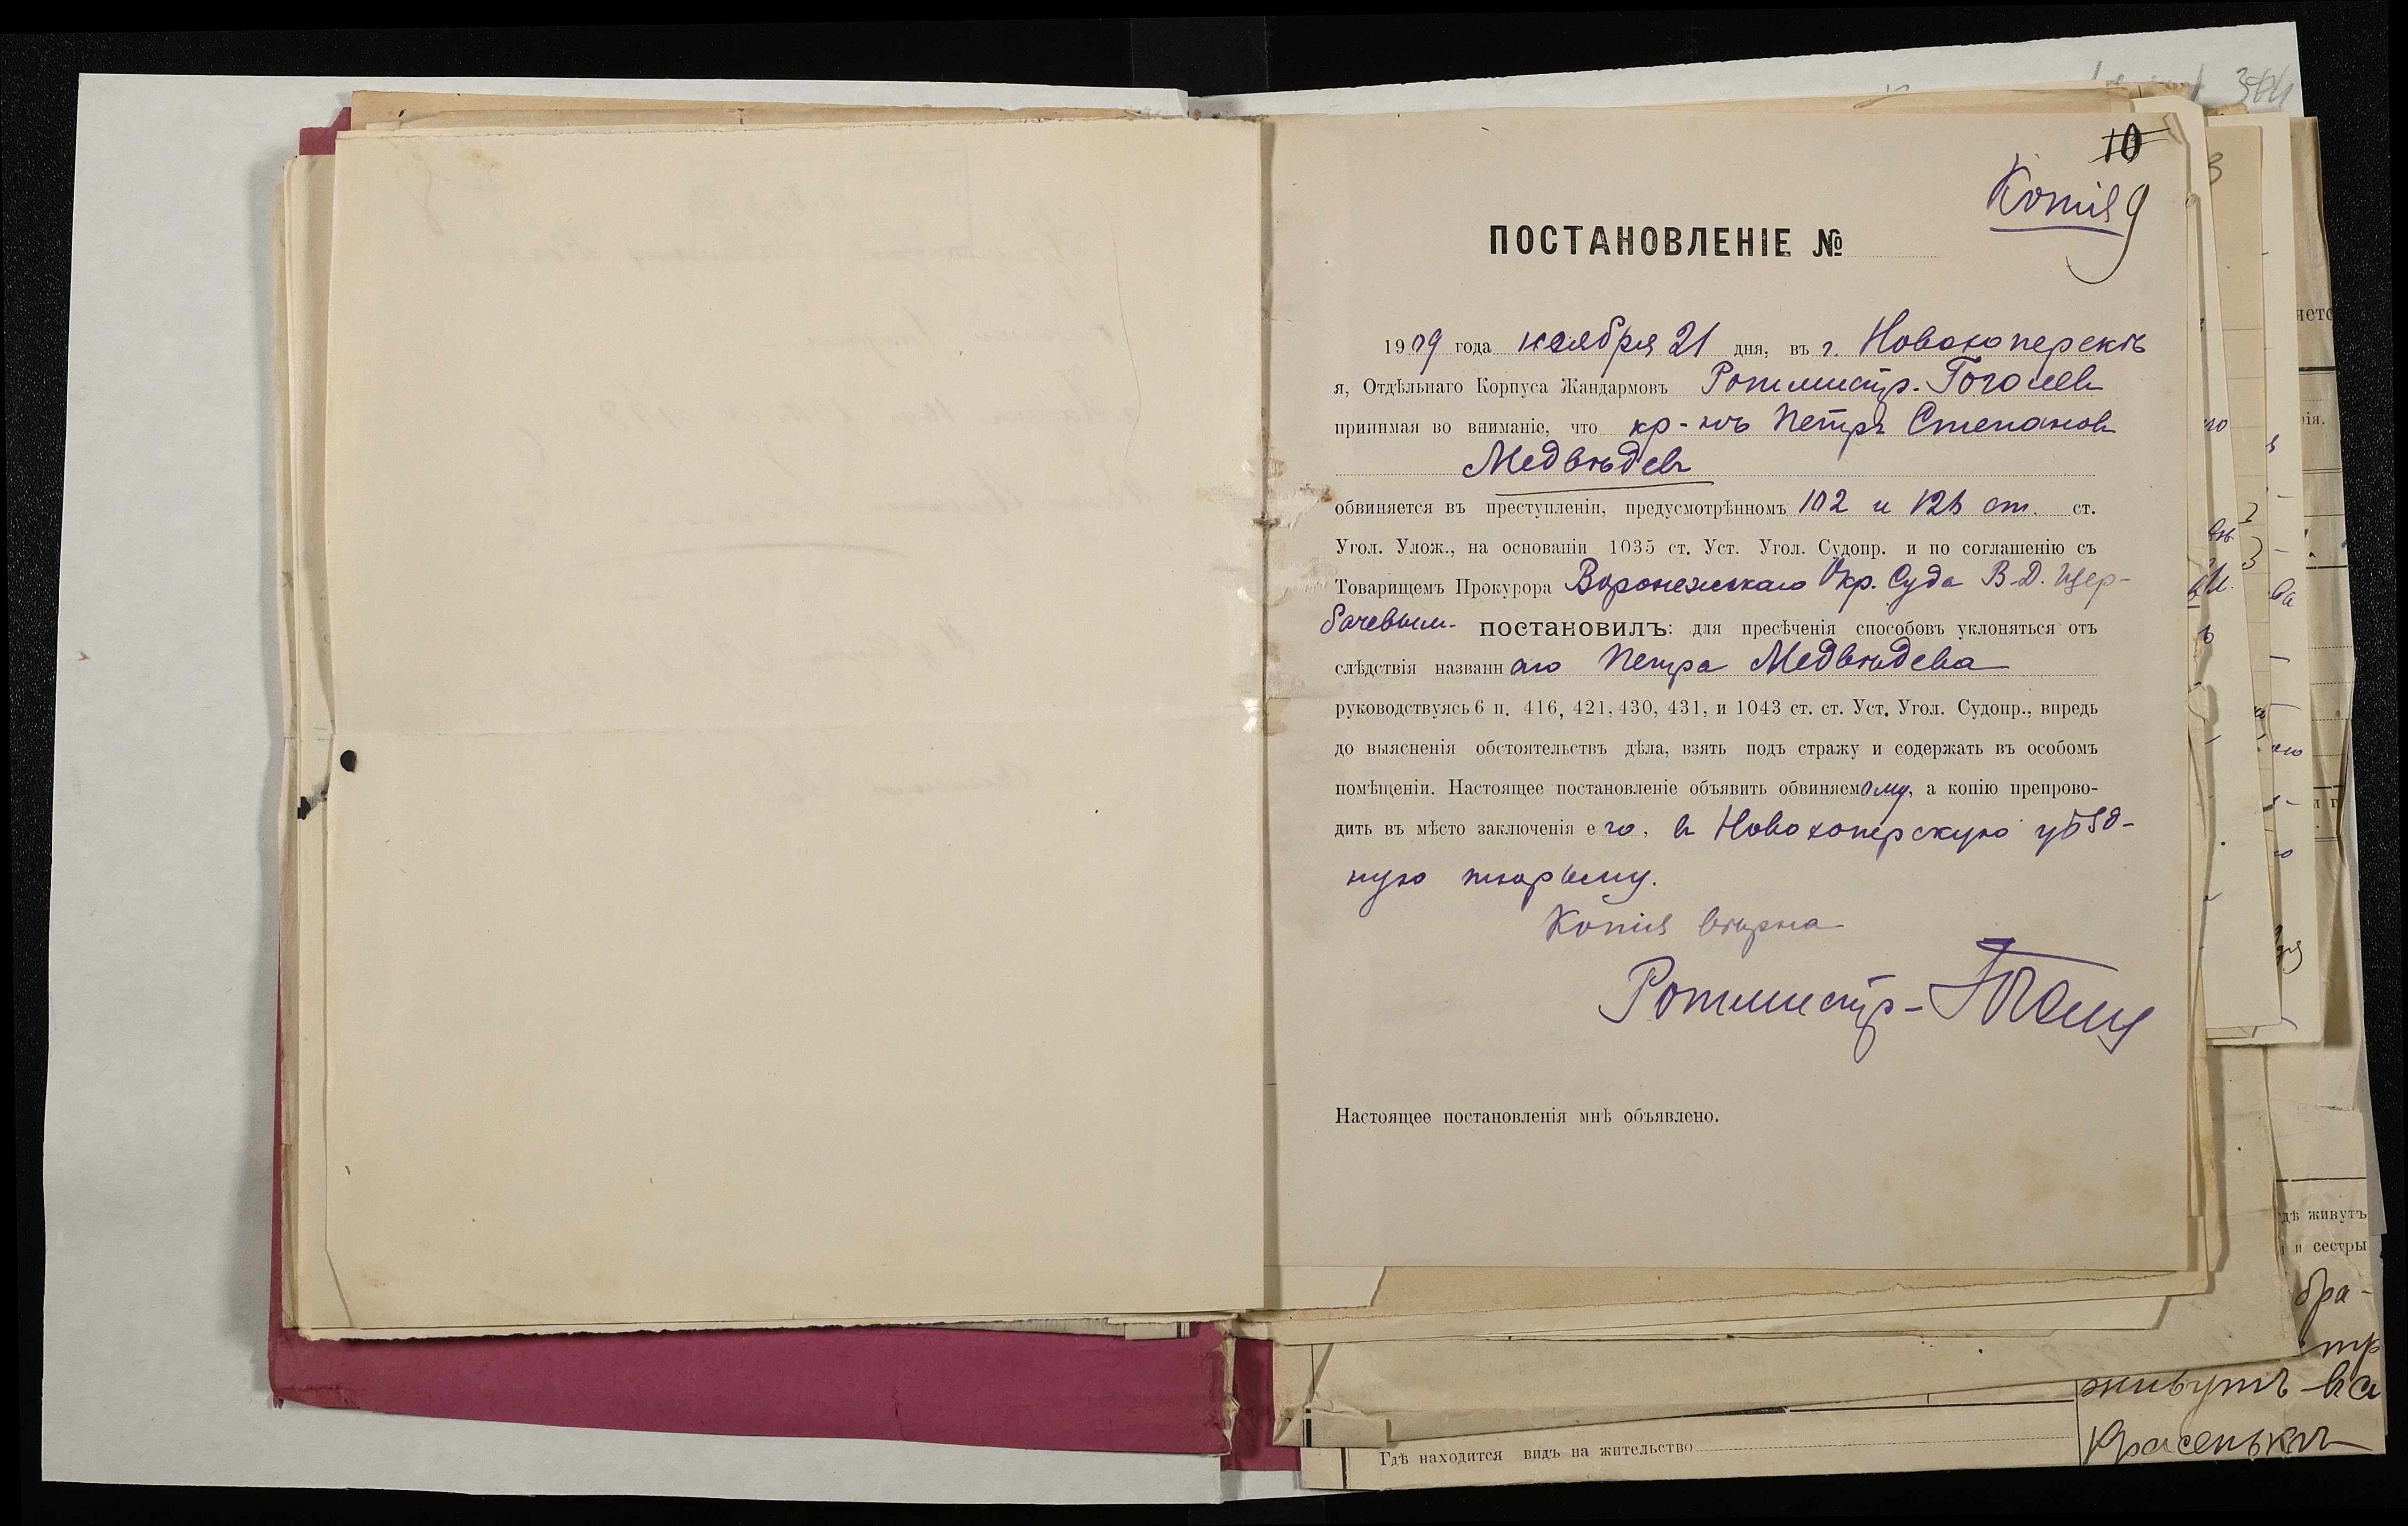 10
Копія 9
ПОСТАНОВЛЕНІЕ №
1909 года ноября 21 дня, въ г. Новохоперскѣ
я, Отдѣльнаго Корпуса Жандармовъ Ротмистръ Гоголевъ
принимая во вниманіе, что кр-нъ Петръ Степановъ
Медвѣдевъ
обвиняется въ преступленіи, предусмотрѣнномъ 102 и 123 ст. ст.
Угол. Улож., на основаніи 1035 ст. Уст. Угол. Судопр. и по соглашенію съ
Товарищемъ Прокурора Воронежскаго Окр. Суда В. Д. Щер-
бачевым- ПОСТАНОВИЛЪ: для пресѣченія способовъ уклоняться отъ
слѣдствія названнаго Петра Медвѣдева
руководствуясь 6 п. 416, 421, 430, 431, и 1043 ст. ст. Уст. Угол. Судопр., впредь
до выясненія обстоятельствъ дѣла, взять подъ стражу и содержать въ особомъ
помѣщеніи. Настоящее постановленіе объявить обвиняемому, а копію препрово-
дить въ мѣсто заключенія его, въ Новохоперскую уѣзд-
ную тюрьму.
Копія вѣрна
Ротмистръ
Настоящее постановленія мнѣ объявлено.
дѣ живутъ
и сестры
бра-
живутъ въ
Красенькъ
Гдѣ находится видъ на жительство